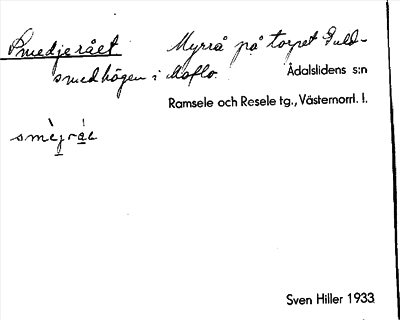 Smedjerået Myrrå på torpet Guld-
smedhögen i Moflo. Ådalslidens s:n
Ramsele och Resele tg., Västernorrl. l.
smèjráe
Sven Hiller 1933